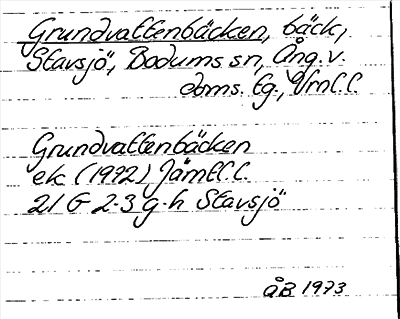 Grundvattenbäcken, bäck,
Stavsjö, Bodums sn, Ång. v.
doms. tg., Jmt l.
Grundvattenbäcken
ek (1972) Jämtl. l.
21 G 2-3 g-h Stavsjö
ÅB 1973